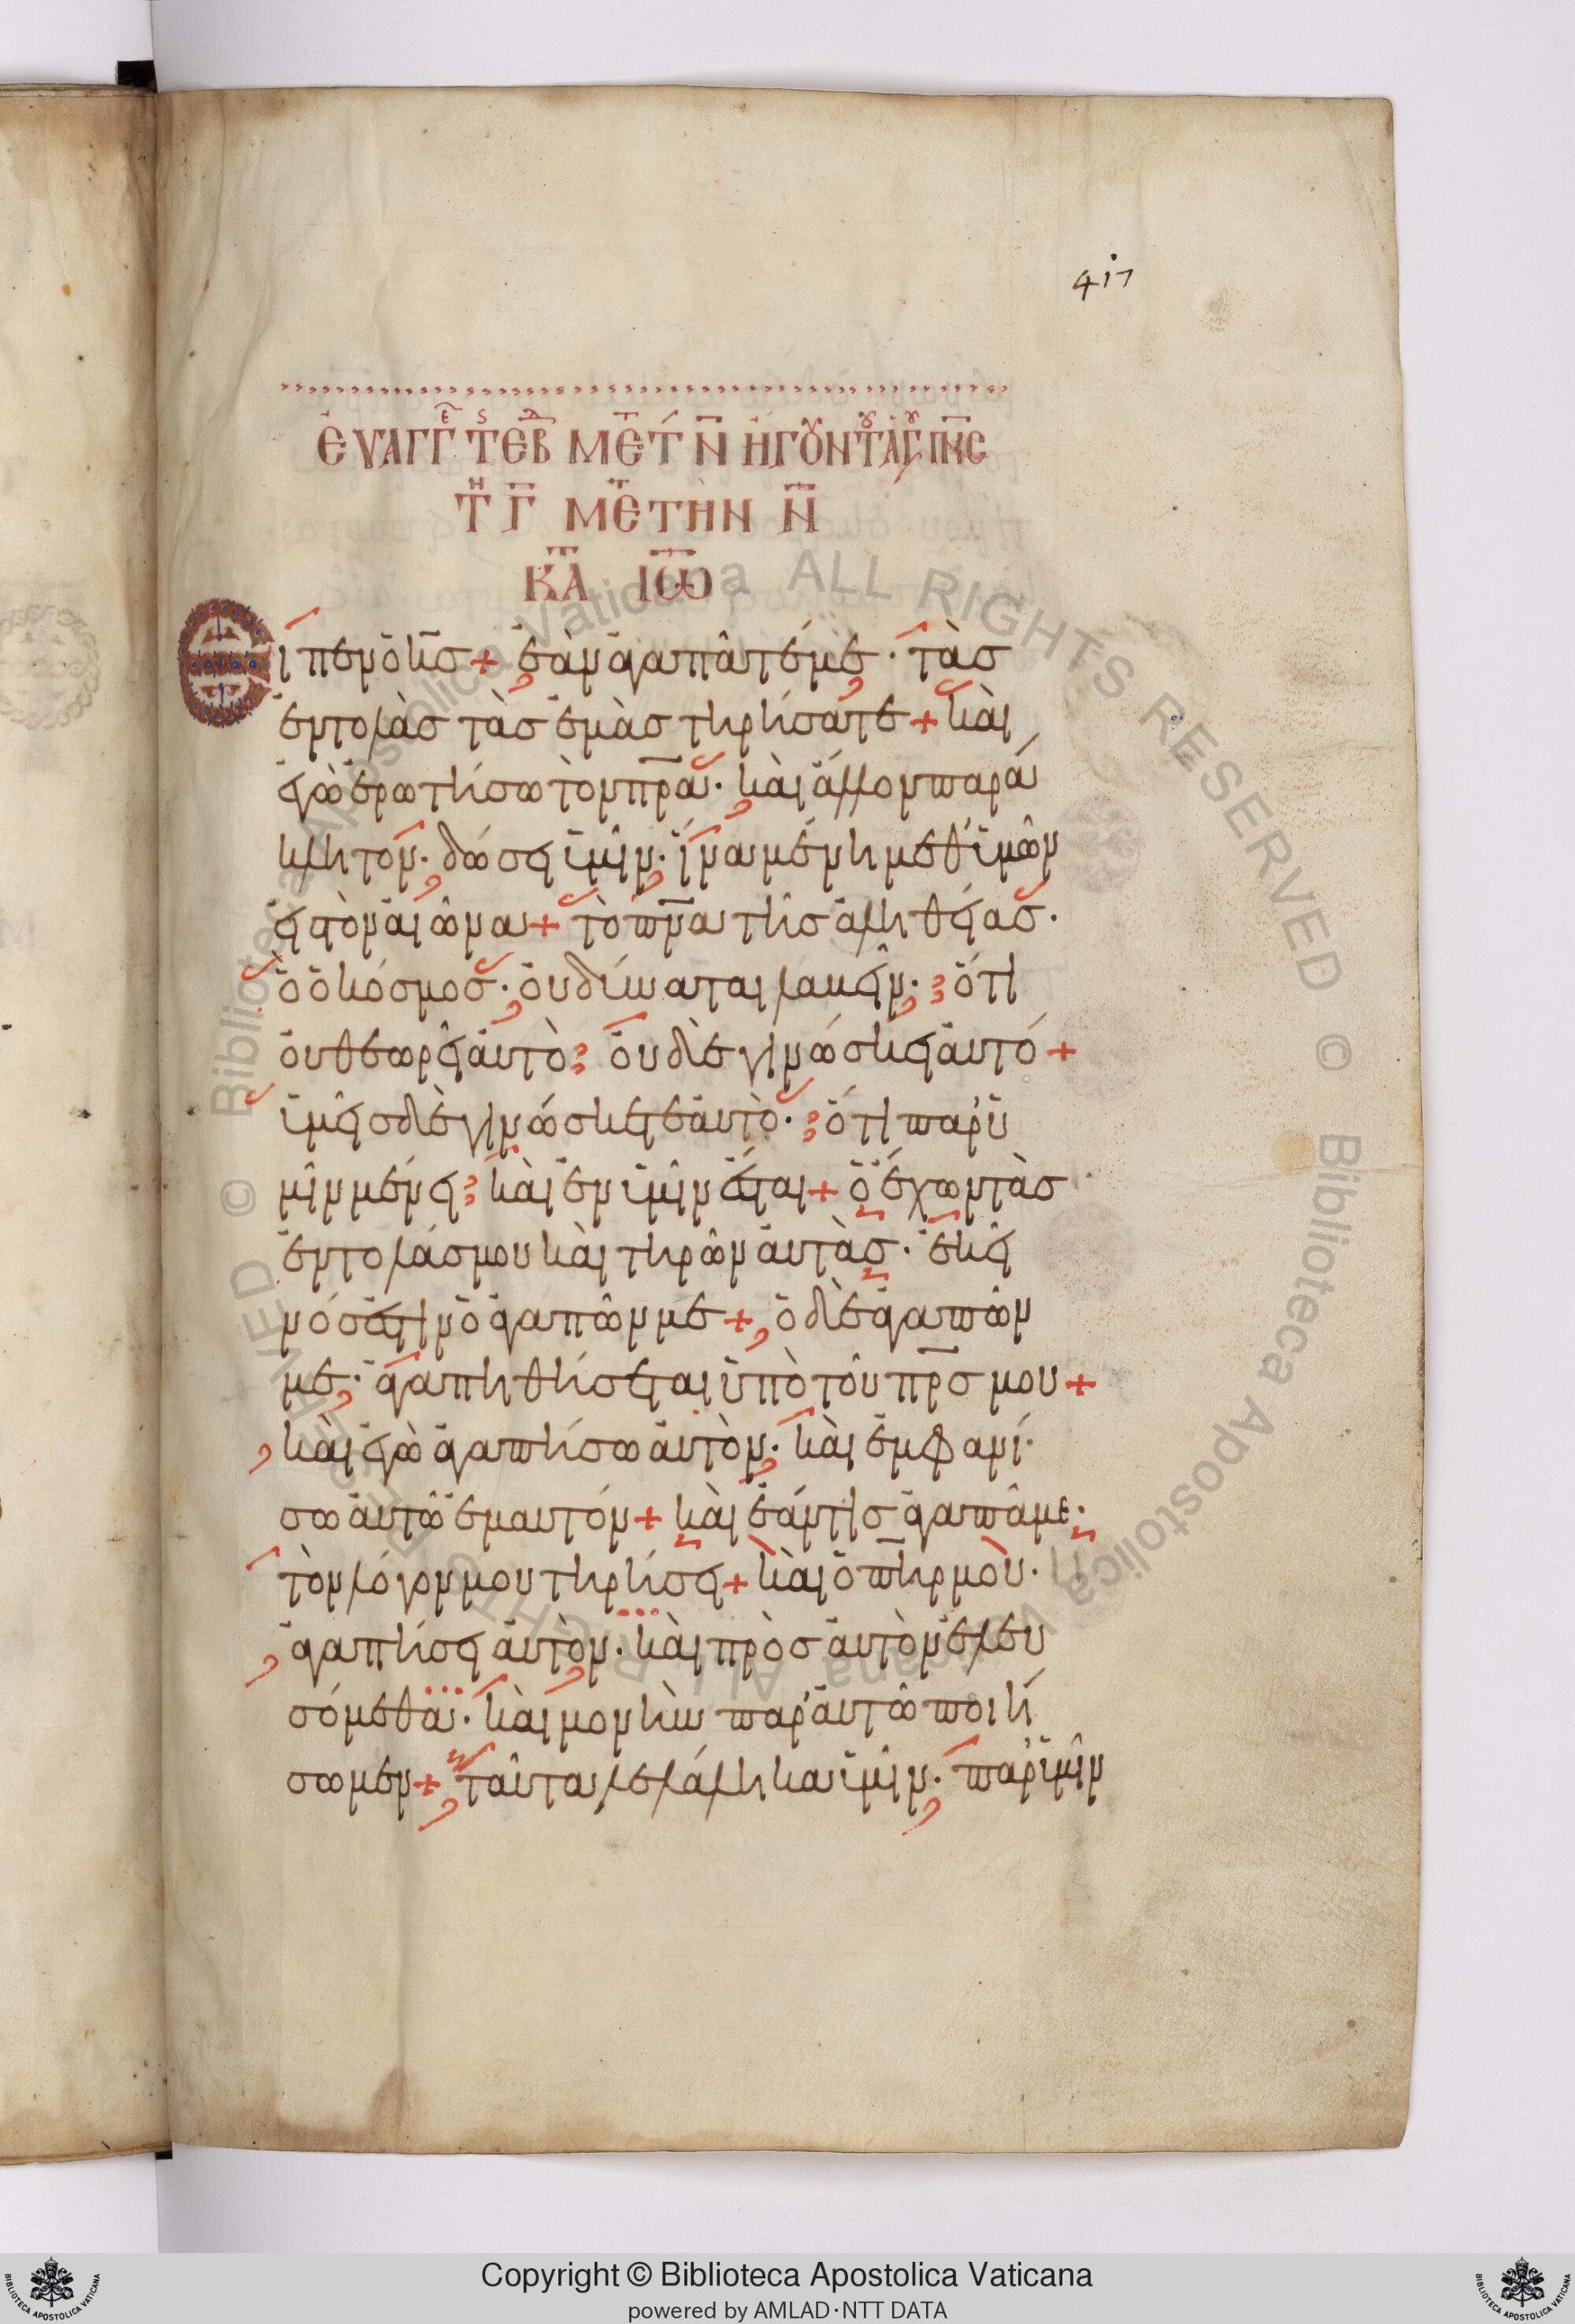 417
ΕΥΑΓΓ ΤΕΒ ΜΕΤ Ν ΗΓΟΥΝ Τ ΑΓ ΠΝϹ
Τ Γ ΜΕ ΤΗΝ Ν
ΚΑ ΙΩ
Εἶπεν ὁ κ̅ς̅ + ἐὰν ἀγαπᾶτέ με · τὰς
ἐντολὰς τὰς ἐμὰς τηρήσατε + καὶ
ἐγὼ ἐρωτήσω τὸν π̅ρ̅α̅ · καὶ ἄλλον παρά
κλητον · δώσει ὑμῖν · ἵνα μένη μεθ' ὑμῶν
εἰς τὸν αἰῶνα + τὸ π̅ν̅α̅ τῆς ἀληθείας ·
ὃ ὁ κόσμος · οὐ δύναται λαβεῖν · ὅτι
οὐ θεωρεῖ αὐτὸ οὐδὲ γινώσκει αὐτό +
ὑμεῖς δὲ γινώσκετε αὐτὸ · ὅτι παρ' ὑ
μῖν μένει καὶ ἐν ὑμῖν ἔσται + ὁ ἔχων τὰς
ἐντολάς μου καὶ τηρῶν αὐτὰς · ἐκεῖ
νός ἐστιν ὁ ἀγαπῶν με + ὁ δὲ ἀγαπῶν
με · ἀγαπηθήσεται ὑπὸ τοῦ π̅ρ̅ς̅ μου +
καὶ ἐγὼ ἀγαπήσω αὐτὸν · καὶ ἐμφανί
σω αὐτῶ ἐμαυτόν + καὶ ἐάν τις ἀγαπᾶ με ·
τὸν λόγον μου τηρήσει + καὶ ὁ π̅η̅ρ̅ μοὺ ·
ἀγαπήσει αὐτὸν · καὶ πρὸς αὐτὸν ἐλευ
σόμεθα · καὶ μονὴν παρ' αὐτῶ ποιή
σωμεν + ταῦτα λελάληκα ὑμῖν · παρ' ὑμῖν
Copyright © Biblioteca Apostolica Vaticana
powered by AMLAD·NTT DATA
© Biblioteca Apostolica Vaticana ALL RIGHTS RESERVED © Biblioteca Apostolica Vaticana ALL RIGHTS RESERVED
BIBLIOTECA APOSTOLICA VATICANA
BIBLIOTECA APOSTOLICA VATICANA